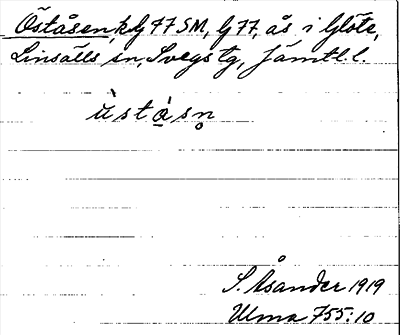 Öståsen, kG 77 SM, G 77, ås i Glöte,
Linsälls sn, Svegs tg, Jämtl. l.
ùstá̱sn̥
S. Åsander 1919
Ulma 755:10